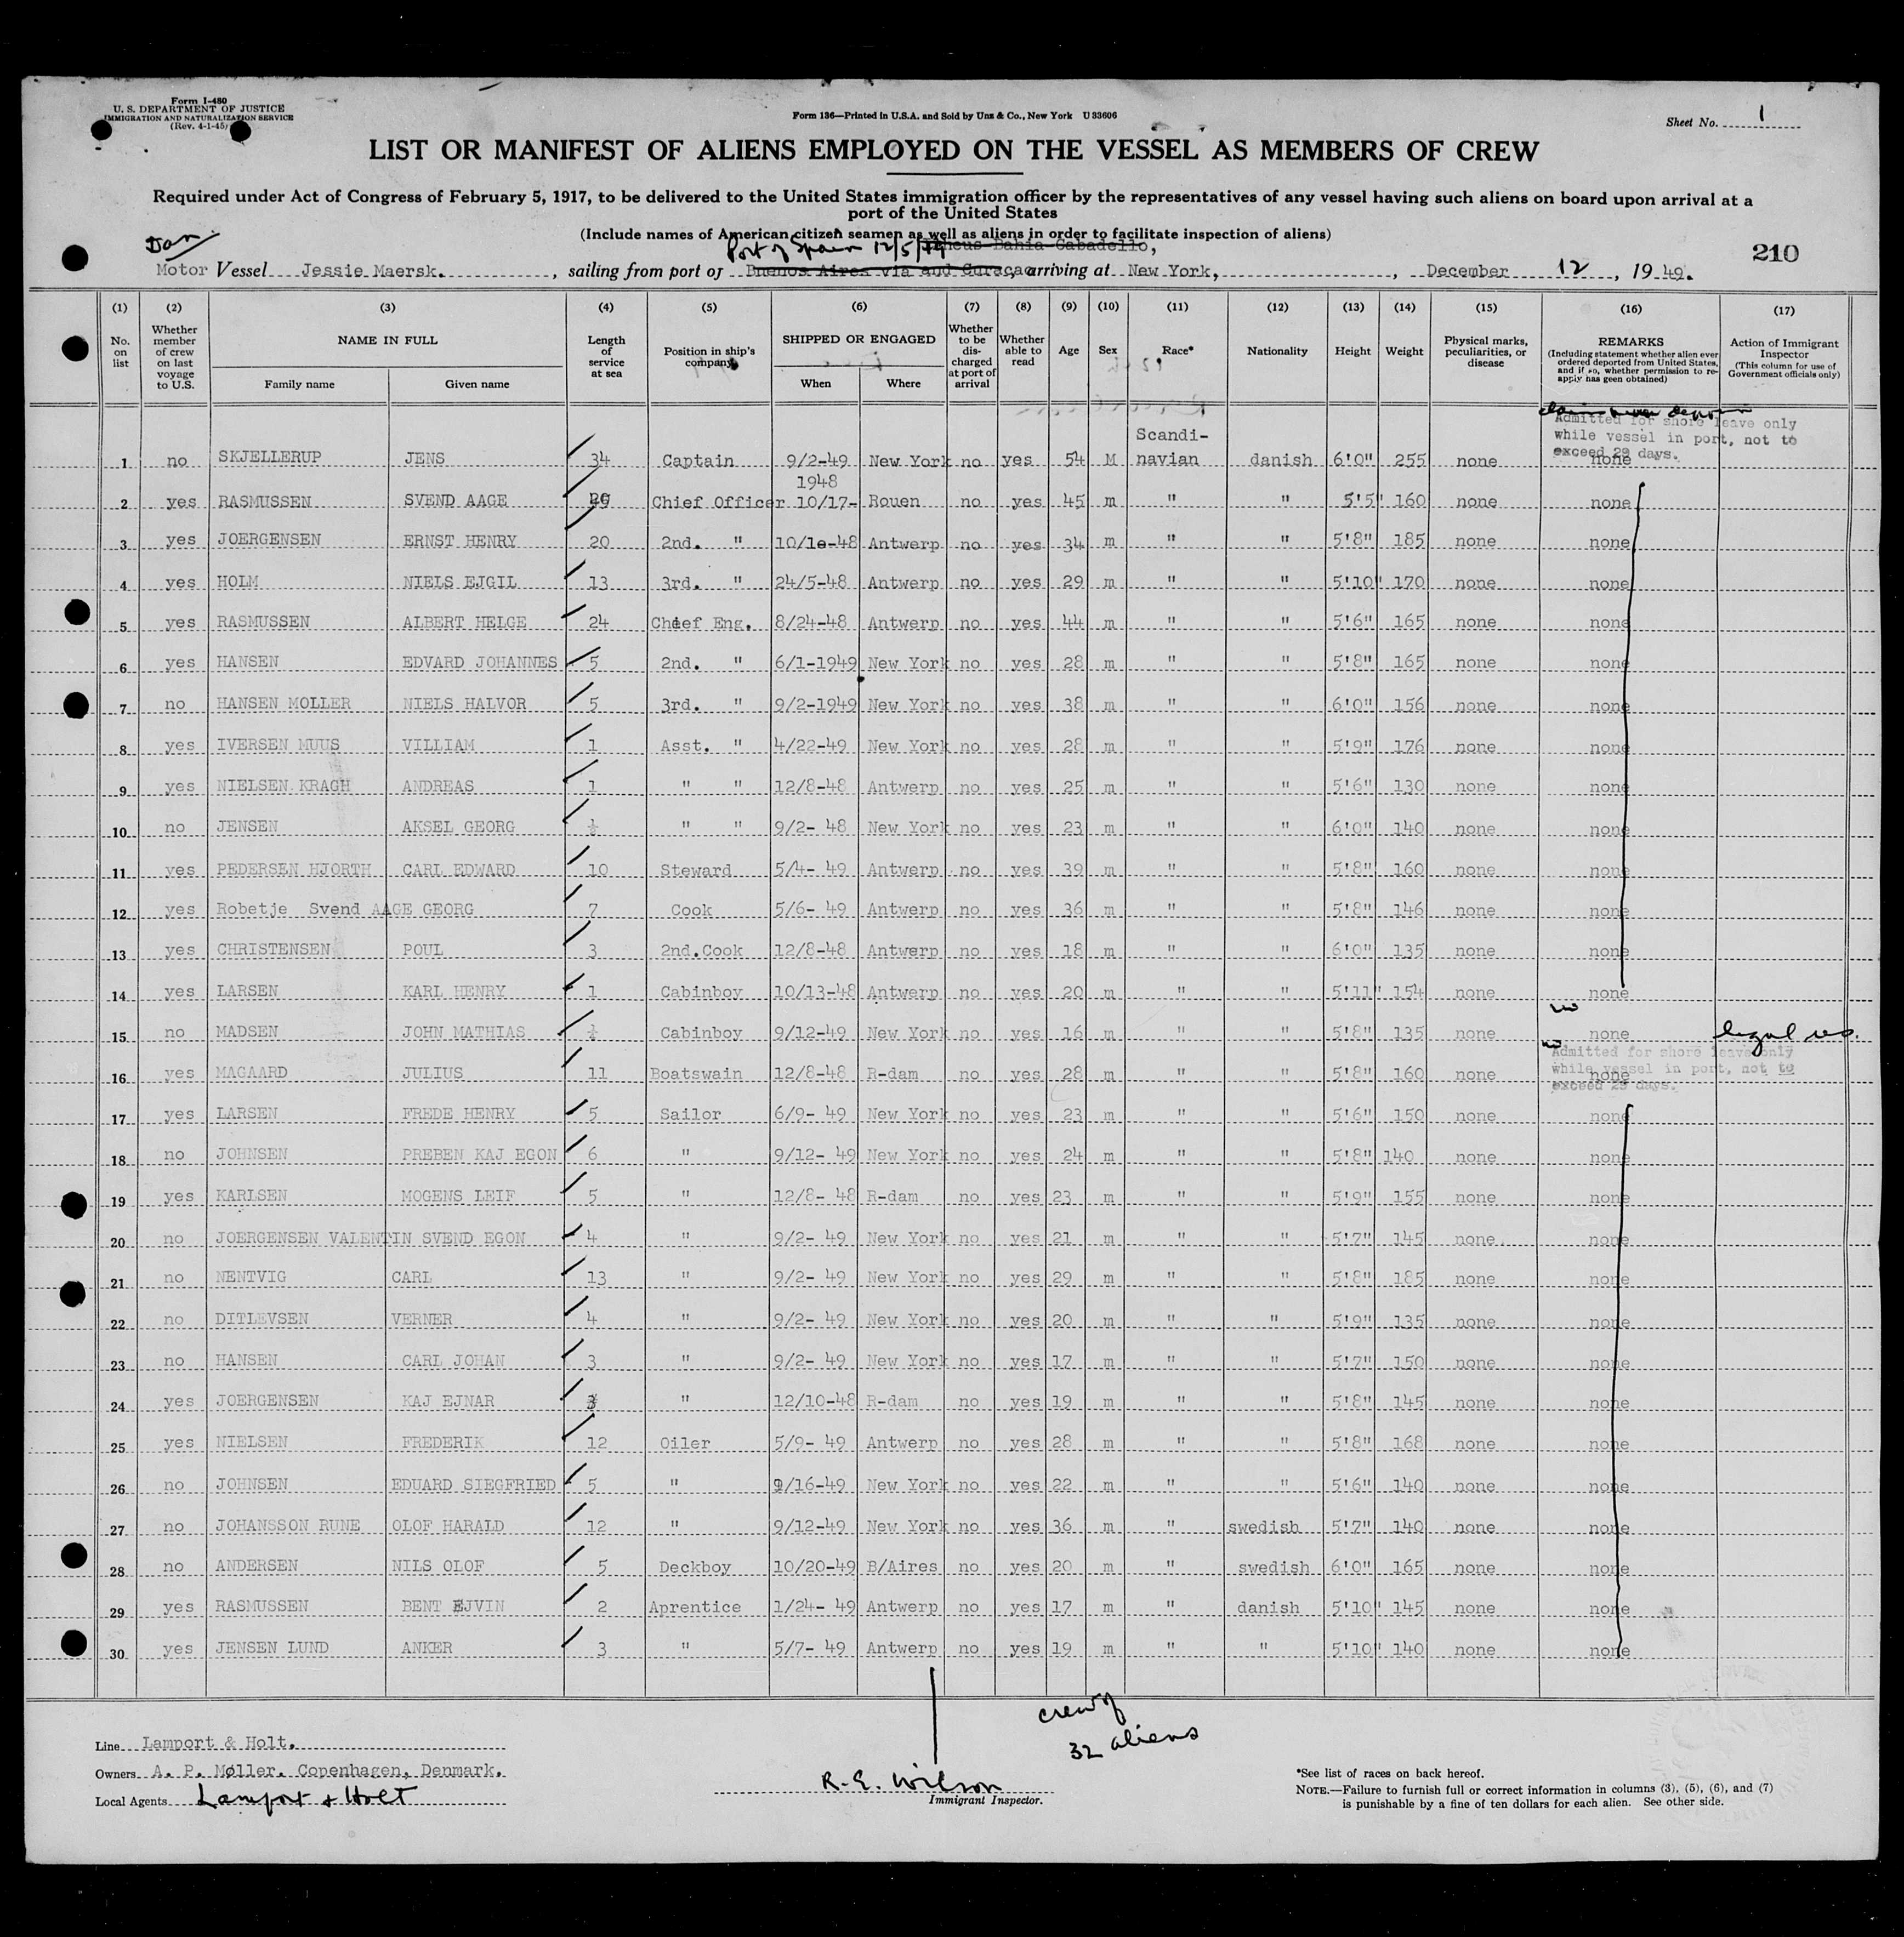 Form I-480
U. S. DEPARTMENT OF JUSTICE
IMMIGRATION AND NATURALIZATION SERVICE
(Rev. 4-1-45)
Form 136—Printed in U.S.A. and Sold by Unz & Co., New York U 33606
Sheet No. 1
LIST OR MANIFEST OF ALIENS EMPLOYED ON THE VESSEL AS MEMBERS OF CREW
Required under Act of Congress of February 5, 1917, to be delivered to the United States immigration officer by the representatives of any vessel having such aliens on board upon arrival at a
port of the United States
(Include names of American citizen seamen as well as aliens in order to facilitate inspection of aliens)
Dan.
Port of Spain 12/5/49 Bahia Cabadello,
210
Motor Vessel Jessie Maersk. , sailing from port of Buenos Aires via and Curaçao, arriving at New York, , December 12, 1949.
(1) (2) (3) (4) (5) (6) (7) (8) (9) (10) (11) (12) (13) (14) (15) (16) (17)
No. on list
Whether member of crew on last voyage to U.S.
NAME IN FULL
Family name Given name
Length of service at sea
Position in ship's company
SHIPPED OR ENGAGED
When Where
Whether to be discharged at port of arrival
Whether able to read
Age
Sex
Race*
Nationality
Height
Weight
Physical marks, peculiarities, or disease
REMARKS
(Including statement whether alien ever ordered deported from United States, and if so, whether permission to re-apply has geen obtained)
Action of Immigrant Inspector
(This column for use of Government officials only)
Admitted for shore leave only
while vessel in port, not to
exceed 29 days.
1 no SKJELLERUP JENS 34 Captain 9/2-49 New York no yes 54 M Scandi-navian danish 6'0" 255 none none
2 yes RASMUSSEN SVEND AAGE Chief Officer 1948 10/17- Rouen no yes 45 m " " 5'5" 160 none none
3 yes JOERGENSEN ERNST HENRY 20 2nd. " 10/1e-48 Antwerp no yes 34 m " " 5'8" 185 none none
4 yes HOLM NIELS EJGIL 13 3rd. " 24/5-48 Antwerp no yes 29 m " " 5'10" 170 none none
5 yes RASMUSSEN ALBERT HELGE 24 Chief Eng. 8/24-48 Antwerp no yes 44 m " " 5'6" 165 none none
6 yes HANSEN EDVARD JOHANNES 5 2nd. " 6/1-1949 New York no yes 28 m " " 5'8" 165 none none
7 no HANSEN MOLLER NIELS HALVOR 5 3rd. " 9/2-1949 New York no yes 38 m " " 6'0" 156 none none
8 yes IVERSEN MUUS VILLIAM 1 Asst. " 4/22-49 New York no yes 28 m " " 5'9" 176 none none
9 yes NIELSEN KRAGH ANDREAS 1 " " 12/8-48 Antwerp no yes 25 m " " 5'6" 130 none none
10 no JENSEN AKSEL GEORG ½ " " 9/2- 48 New York no yes 23 m " " 6'0" 140 none none
11 yes PEDERSEN HJORTH CARL EDWARD 10 Steward 5/4- 49 Antwerp no yes 39 m " " 5'8" 160 none none
12 yes Robetje Svend AAGE GEORG 7 Cook 5/6- 49 Antwerp no yes 36 m " " 5'8" 146 none none
13 yes CHRISTENSEN POUL 3 2nd.Cook 12/8-48 Antwerp no yes 18 m " " 6'0" 135 none none
14 yes LARSEN KARL HENRY 1 Cabinboy 10/13-48 Antwerp no yes 20 m " " 5'11" 154 none none
15 no MADSEN JOHN MATHIAS ½ Cabinboy 9/12-49 New York no yes 16 m " " 5'8" 135 none none legal res.
Admitted for shore leave only
while vessel in port, not to
exceed 29 days.
16 yes MAGAARD JULIUS 11 Boatswain 12/8-48 R-dam no yes 28 m " " 5'8" 160 none none
17 yes LARSEN FREDE HENRY 5 Sailor 6/9- 49 New York no yes 23 m " " 5'6" 150 none none
18 no JOHNSEN PREBEN KAJ EGON 6 " 9/12- 49 New York no yes 24 m " " 5'8" 140 none none
19 yes KARLSEN MOGENS LEIF 5 " 12/8- 48 R-dam no yes 23 m " " 5'9" 155 none none
20 no JOERGENSEN VALENTIN SVEND EGON 4 " 9/2- 49 New York no yes 21 m " " 5'7" 145 none none
21 no NENTVIG CARL 13 " 9/2- 49 New York no yes 29 m " " 5'8" 185 none none
22 no DITLEVSEN VERNER 4 " 9/2- 49 New York no yes 20 m " " 5'9" 135 none none
23 no HANSEN CARL JOHAN 3 " 9/2- 49 New York no yes 17 m " " 5'7" 150 none none
24 yes JOERGENSEN KAJ EJNAR 3 " 12/10-48 R-dam no yes 19 m " " 5'8" 145 none none
25 yes NIELSEN FREDERIK 12 Oiler 5/9- 49 Antwerp no yes 28 m " " 5'8" 168 none none
26 no JOHNSEN EDUARD SIEGFRIED 5 " 9/16-49 New York no yes 22 m " " 5'6" 140 none none
27 no JOHANSSON RUNE OLOF HARALD 12 " 9/12-49 New York no yes 36 m " swedish 5'7" 140 none none
28 no ANDERSEN NILS OLOF 5 Deckboy 10/20-49 B/Aires no yes 20 m " swedish 6'0" 165 none none
29 yes RASMUSSEN BENT EJVIN 2 Aprentice 1/24- 49 Antwerp no yes 17 m " danish 5'10" 145 none none
30 yes JENSEN LUND ANKER 3 " 5/7- 49 Antwerp no yes 19 m " " 5'10" 140 none none
crew of
32 aliens
Line Lamport & Holt.
Owners A. P. Møller. Copenhagen, Denmark.
Local Agents Lamport & Holt
R. E. Wilson
Immigrant Inspector.
*See list of races on back hereof.
NOTE.—Failure to furnish full or correct information in columns (3), (5), (6), and (7)
is punishable by a fine of ten dollars for each alien. See other side.